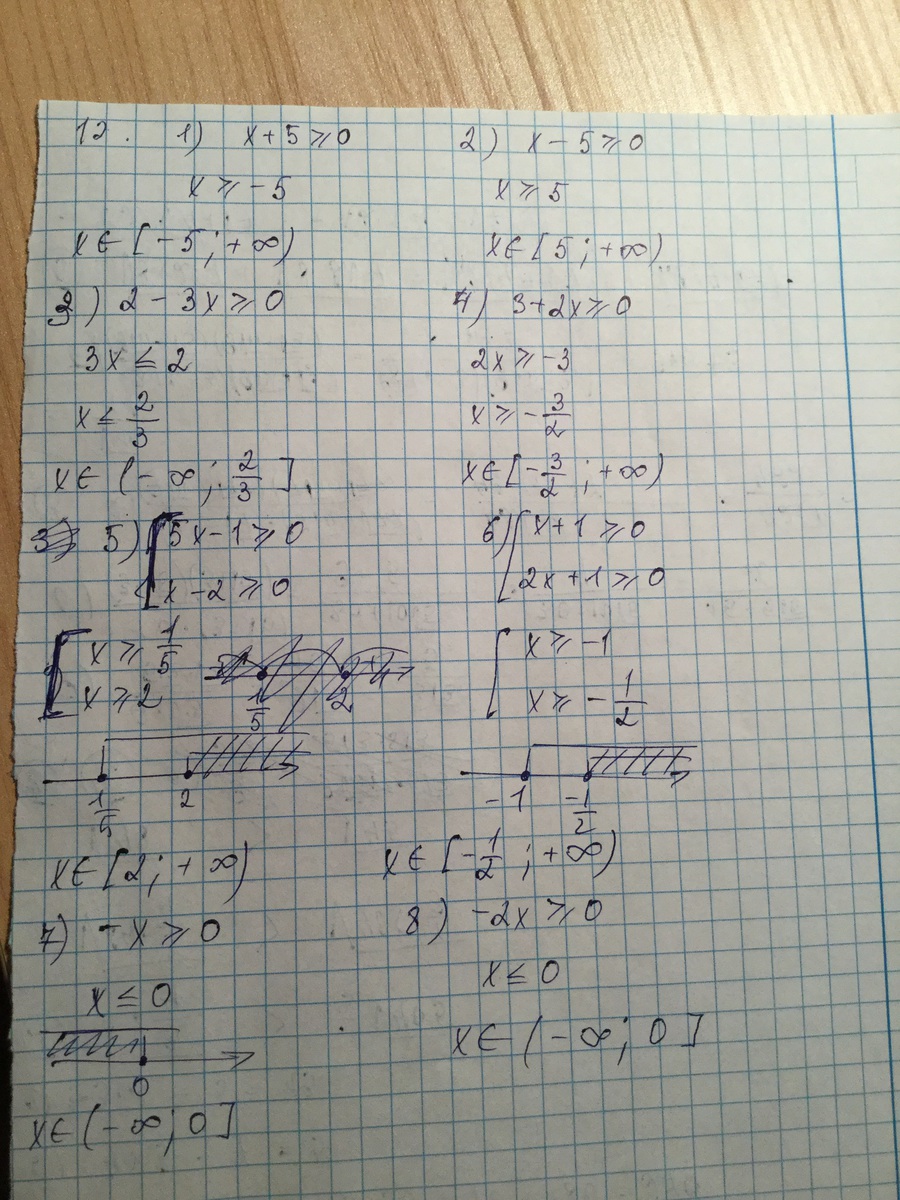 12. 1) x+5⩾0
x⩾-5
x∈[-5;+∞)
2) x-5⩾0
x⩾5
x∈[5;+∞)
3) 2-3x⩾0
3x≤2
x≤2/3
x∈(-∞;2/3]
4) 3+2x⩾0
2x⩾-3
x⩾-3/2
x∈[-3/2;+∞)
5) [5x-1⩾0
x-2⩾0
[x⩾1/5
x⩾2
1/5 2
1/5 2
x∈[2;+∞)
6) [x+1⩾0
2x+1⩾0
[x⩾-1
x⩾-1/2
-1 -1/2
x∈[-1/2;+∞)
7) -x⩾0
x≤0
0
x∈(-∞;0]
8) -2x⩾0
x≤0
x∈(-∞;0]